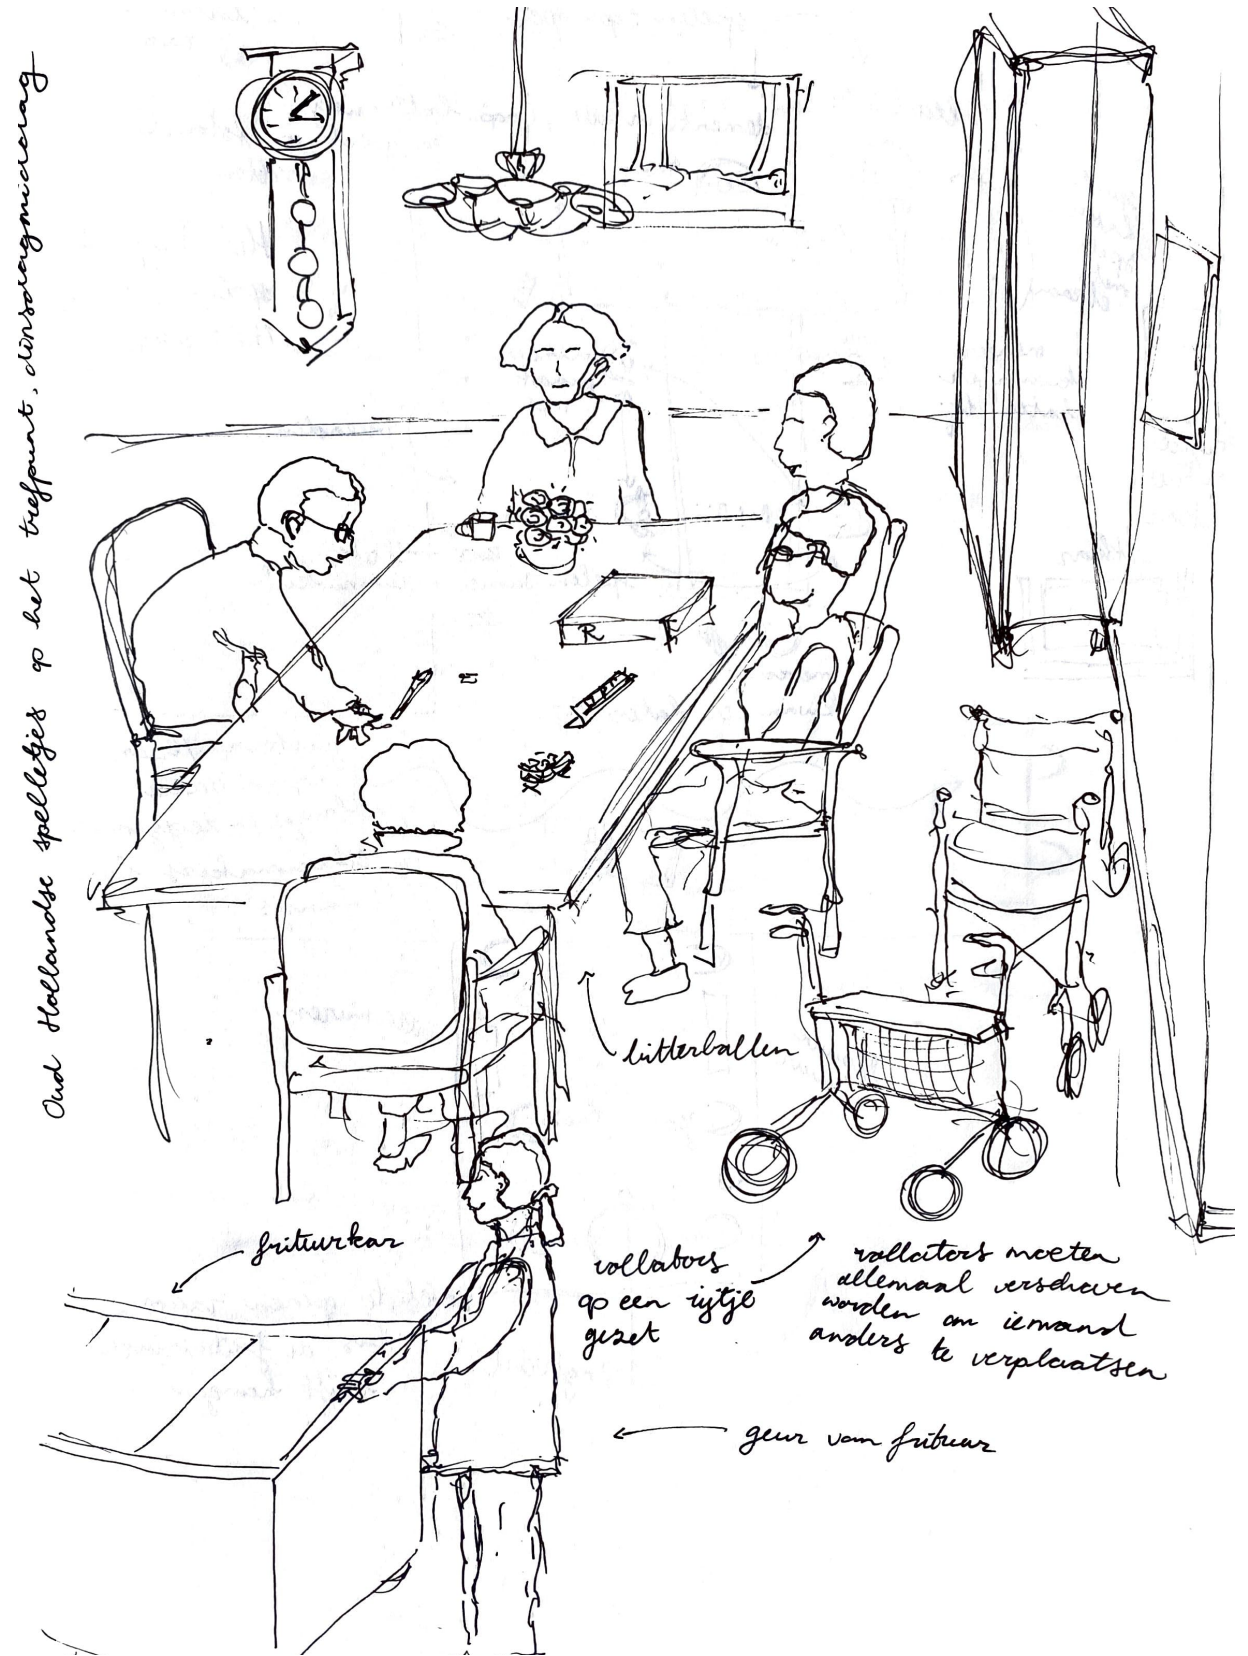 Oud Hollandse spelletjes op het trefpunt, dinsdagmiddag
R
bitterballen
frituurkar
rollators
op een rijtje
gezet
rollators moeten
allemaal verschoven
worden om iemand
anders te verplaatsen
geur van frituur